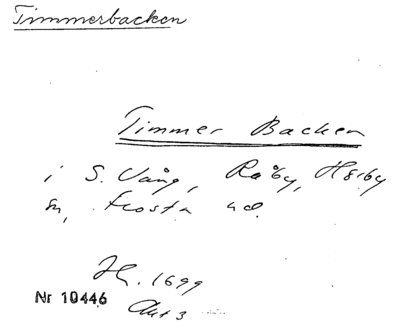 Timmerbacken
Timmer Backen
i S. Vång, Råby, Hörby
sn, Frosta hd.
Jb. 1699
Nr 10446
Akt 3